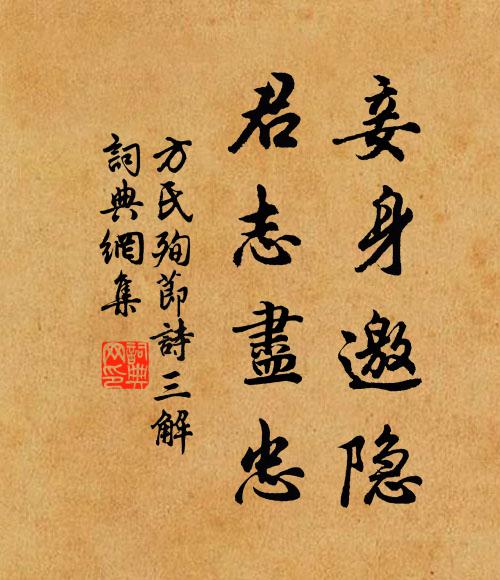 妾身邀隐
君志盡忠
方氏殉節詩三解
詞典網集
詞典
网印